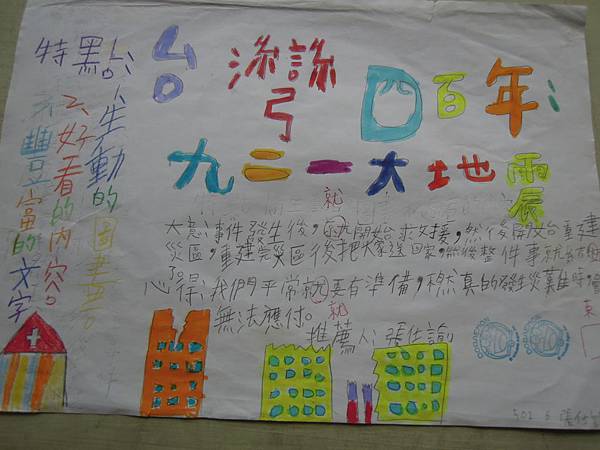 台灣四百年:
九二一大地震
特點:
1.生動的圖畫。
2.好看的內容。
3.豐富的文字
就
大意:事件發生後,就開始救援,然後開始重建
災區,重建完災區後把大家送回家,然後整件事就結束
了。
心得:我們平常就要有準備,不然真的發生災難時,會
就
無法應付。
推薦人:張仕諭
502 6 張仕